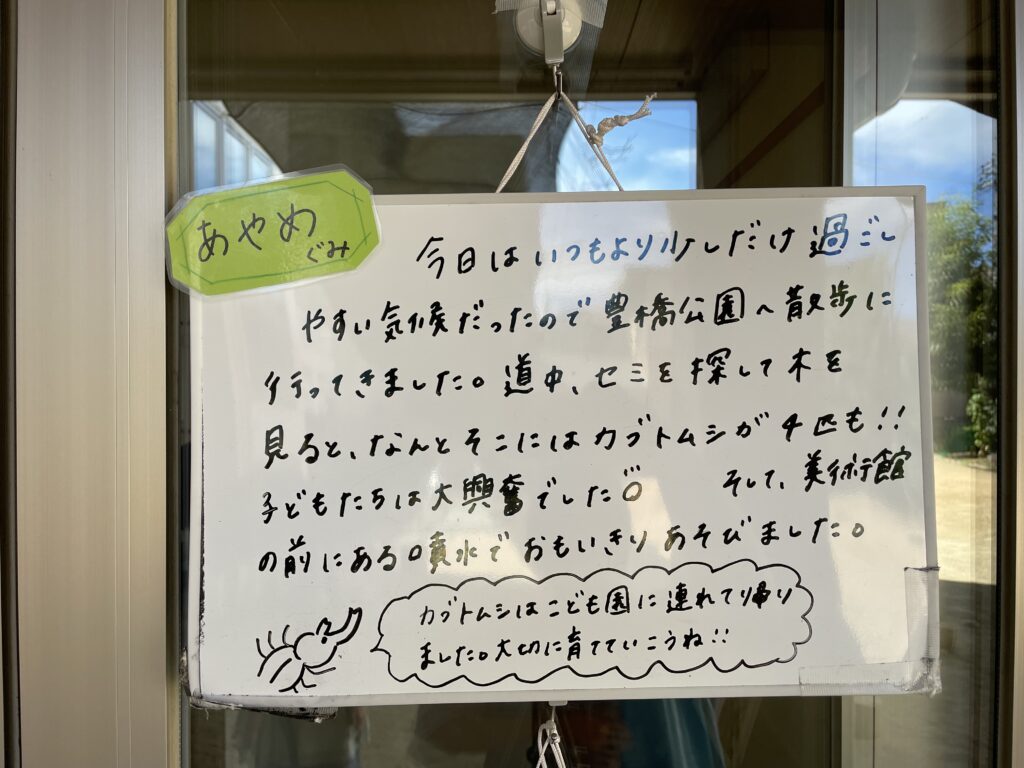 あやめ
ぐみ
今日はいつもより少しだけ過ごし
やすい気候だったので豊橋公園へ散歩に
行ってきました。道中、セミを探して木を
見ると、なんとそこにはカブトムシが4匹も!!
子どもたちは大興奮でした。 そして、美術館
の前にある噴水でおもいきりあそびました。
カブトムシはこども園に連れて帰り
ました。大切に育てていこうね!!